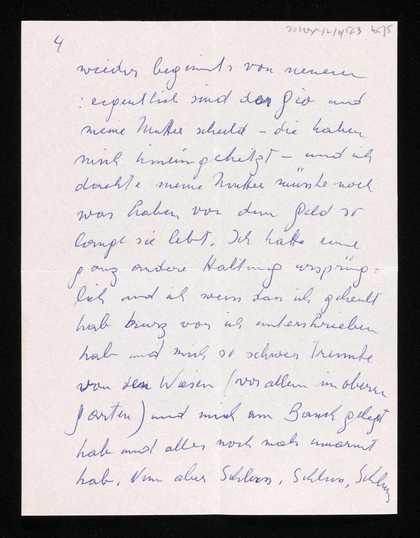 4
wieder beginnts von neuem
: eigentlich sind der Gio und
meine Mutter schuld – die haben
mich hineingehetzt – und ich
dachte meine Mutter müsste noch
was haben von dem Geld so
lange sie lebt. Ich hatte eine
ganz andere Haltung ursprüng-
lich und ich weiss dass ich geheult
hab kurz vor ich unterschrieben
hab und mich so schwer trennte
von den Wiesen (vor allem im oberen
Garten) und mich am Bauch gelegt
hab und alles noch mals umarmt
hab. Nun aber Schluss, Schluss, Schluss